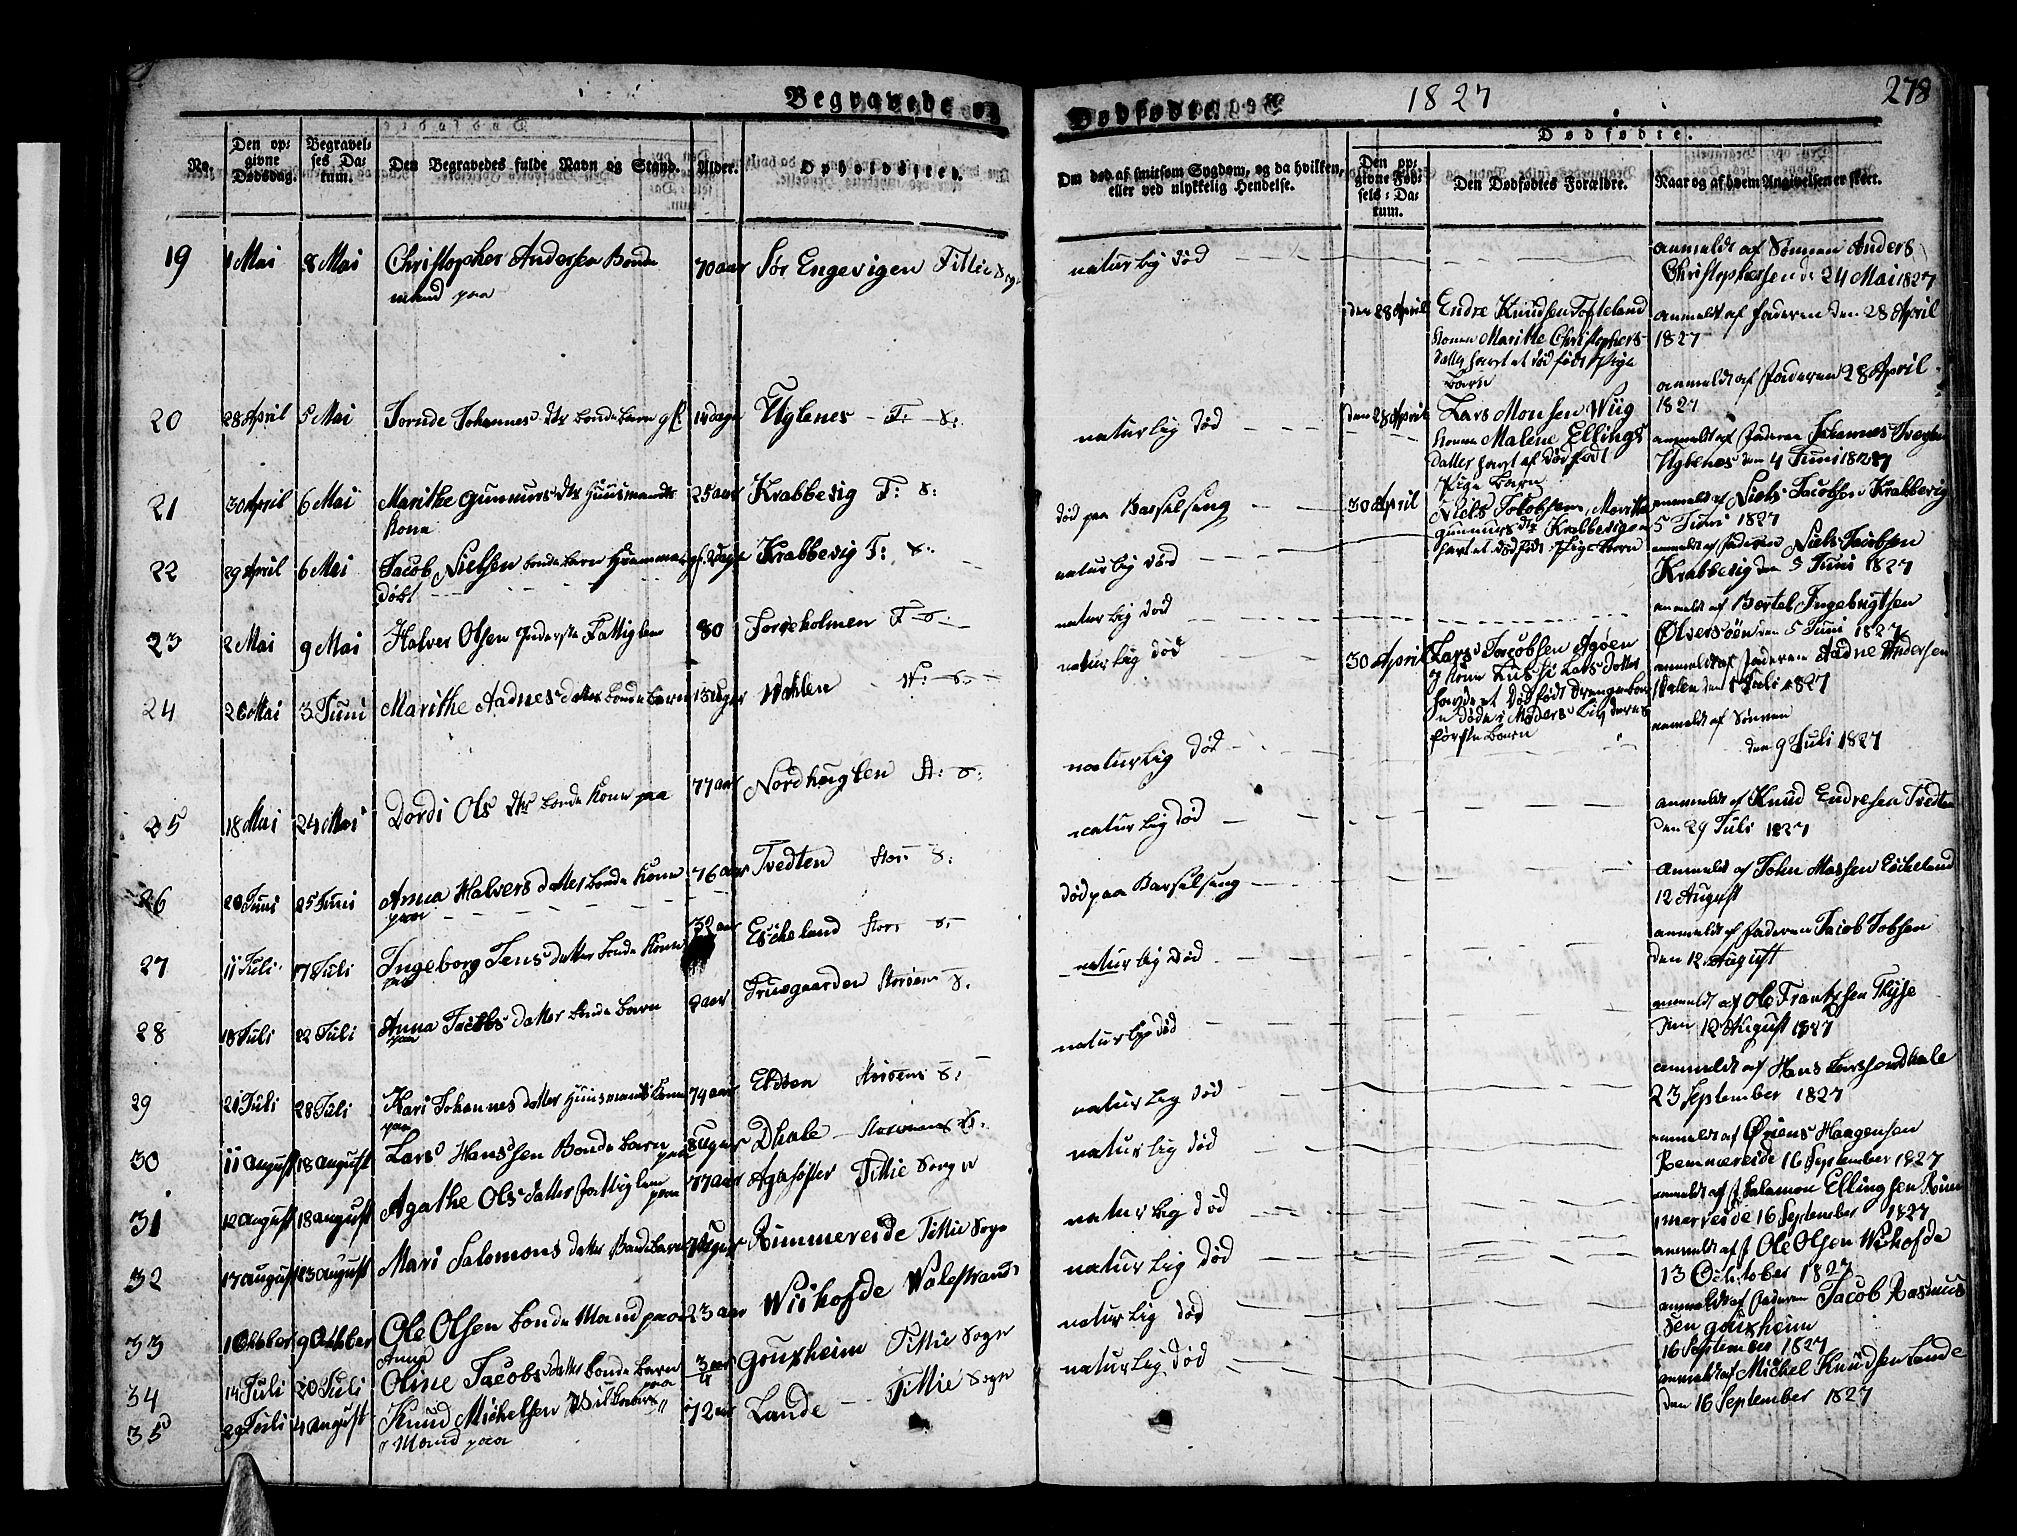 Begravede og Dødfødte. 1827 278
Dødfødte.
No. Den opgivne Dødsdag. Begravelses Datum. Den Begravedes fulde Navn og Stand. Alder. Opholdssted. Om død af smitsom Sygdom, og da hvilken, eller ved ulykkelig Hendelse. Den opgivne Fødsels-Datum. Den Dødfødtes Forældre. Naar og af hvem Angivelsen er skeet.
19 1 Mai 8 Mai Christopher Andersen Bonde 70 aar Sør Engevigen Fittie Sogn naturlig død anmeldt af Sønnen Anders
mand paa Christophersen de 24 Mai 1827
den 28 April Endre Knudsen Tofteland anmeldt af Faderen den 28 April
Konen Marithe Christophers 1827
datter havt et dødfødt Pige
Barn
20 28 April 5 Mai Johannes dtr bonde barn 14 dage Uglenes F: S: naturlig død
den 28 April Lars Monsen Wiig anmeldt af Faderen 28 April
Konen Malene Ellings 1827
datter havt et dødfødt anmeldt af Faderen Johannes
Pige Barn Uglenes den 4 Juni 1827
21 30 April 6 Mai Marithe Gunnars dtr Huusmands 25 aar Krabbevig F: S: død paa Barselseng
Kone
30 April Niels Jacobsen, Marithe anmeldt af Niels Jacobsen Krabbevig
Gunnars dtr Krabbevig 5 Juni 1827
havt et dødfødt Pige Barn
22 29 April 6 Mai Jacob Nielsen bonde barn Hjemme Krabbevig F: S: naturlig død anmeldt af Faderen Niels Jacobsen
døbt Krabbevig den 5 Juni 1827
23 2 Mai 9 Mai Halver Olsen Inderste Fattiglem 80 F: S: naturlig død anmeldt af Bertel Ingebrigtsen
den 5 Juni 1827
24 26 Mai 3 Juni Marithe Aadnes datter bonde barn naturlig død anmeldt af Faderen Aadne Andersen
den 1 Juli 1827
30 April Lars Jacobsen Agøen
og Kone Lars datter
havde et dødfødt drengebarn
døde i Moders Liv deres
første barn
25 18 Mai 24 Mai Dordi Ols dtr bonde Kone paa 77 aar Nordhuglen St: S: naturlig død anmeldt af Sønnen
den 9 Juli 1827
26 20 Juni 25 Juni Anna Halvers datter bonde Kone 76 aar Tvedten Stor: S: naturlig død anmeldt af Knud Endresen Tvedten
paa den 29 Juli 1827
27 11 Juli 17 Juli Ingeborg Jens datter bonde Kone 32 aar Eickeland Stor: S: død paa Barselseng anmeldt af John Massen Eickeland
paa 12 August
28 18 Juli 22 Juli Anna Jacobs datter bonde barn 2 aar Fruegaarden Storøens S: naturlig død anmeldt af Faderen Jacob Jobsen
paa den 12 August
29 21 Juli 28 Juli Kari Johannes datter Huusmands Kone 74 aar Eldøen Storøens S: naturlig død anmeldt af Ole Frantzsen
paa den 12 August 1827
30 11 August 18 August Lars Hanssen Bonde barn paa 8 Uger Dhale Storøens S: naturlig død anmeldt af Hans Larssen Dhale
23 September 1827
31 12 August 18 August Agathe Ols datter Fattiglem paa 77 aar Agasøster Fittie Sogn naturlig død anmeldt af Haagensen
Remmereide 16 September 1827
32 17 August 23 August Mari Salomons datter Bonde barn Rimmereide Fittie Sogn naturlig død anmeldt af Salamon Ellingsen Rim
mereide 16 September 1827
33 1 Oktober 9 Oktober Ole Olsen bonde Mand paa 23 aar Wiikofde Walestrands naturlig død anmeldt af Ole Olsen Wiikofde
13 Octtober 1827
34 14 Juli 20 Juli Anna Oline Jacobs datter bonde barn paa Gouxheim Fittie Sogn naturlig død anmeldt af Faderen Jacob Rasmus
sen Gouxheim
16 September 1827
35 29 Juli 4 August Knud Michelsen 72 aar Lande Fittie Sogn naturlig død anmeldt af Michel Knudsen Lande
Mand paa den 16 September 1827